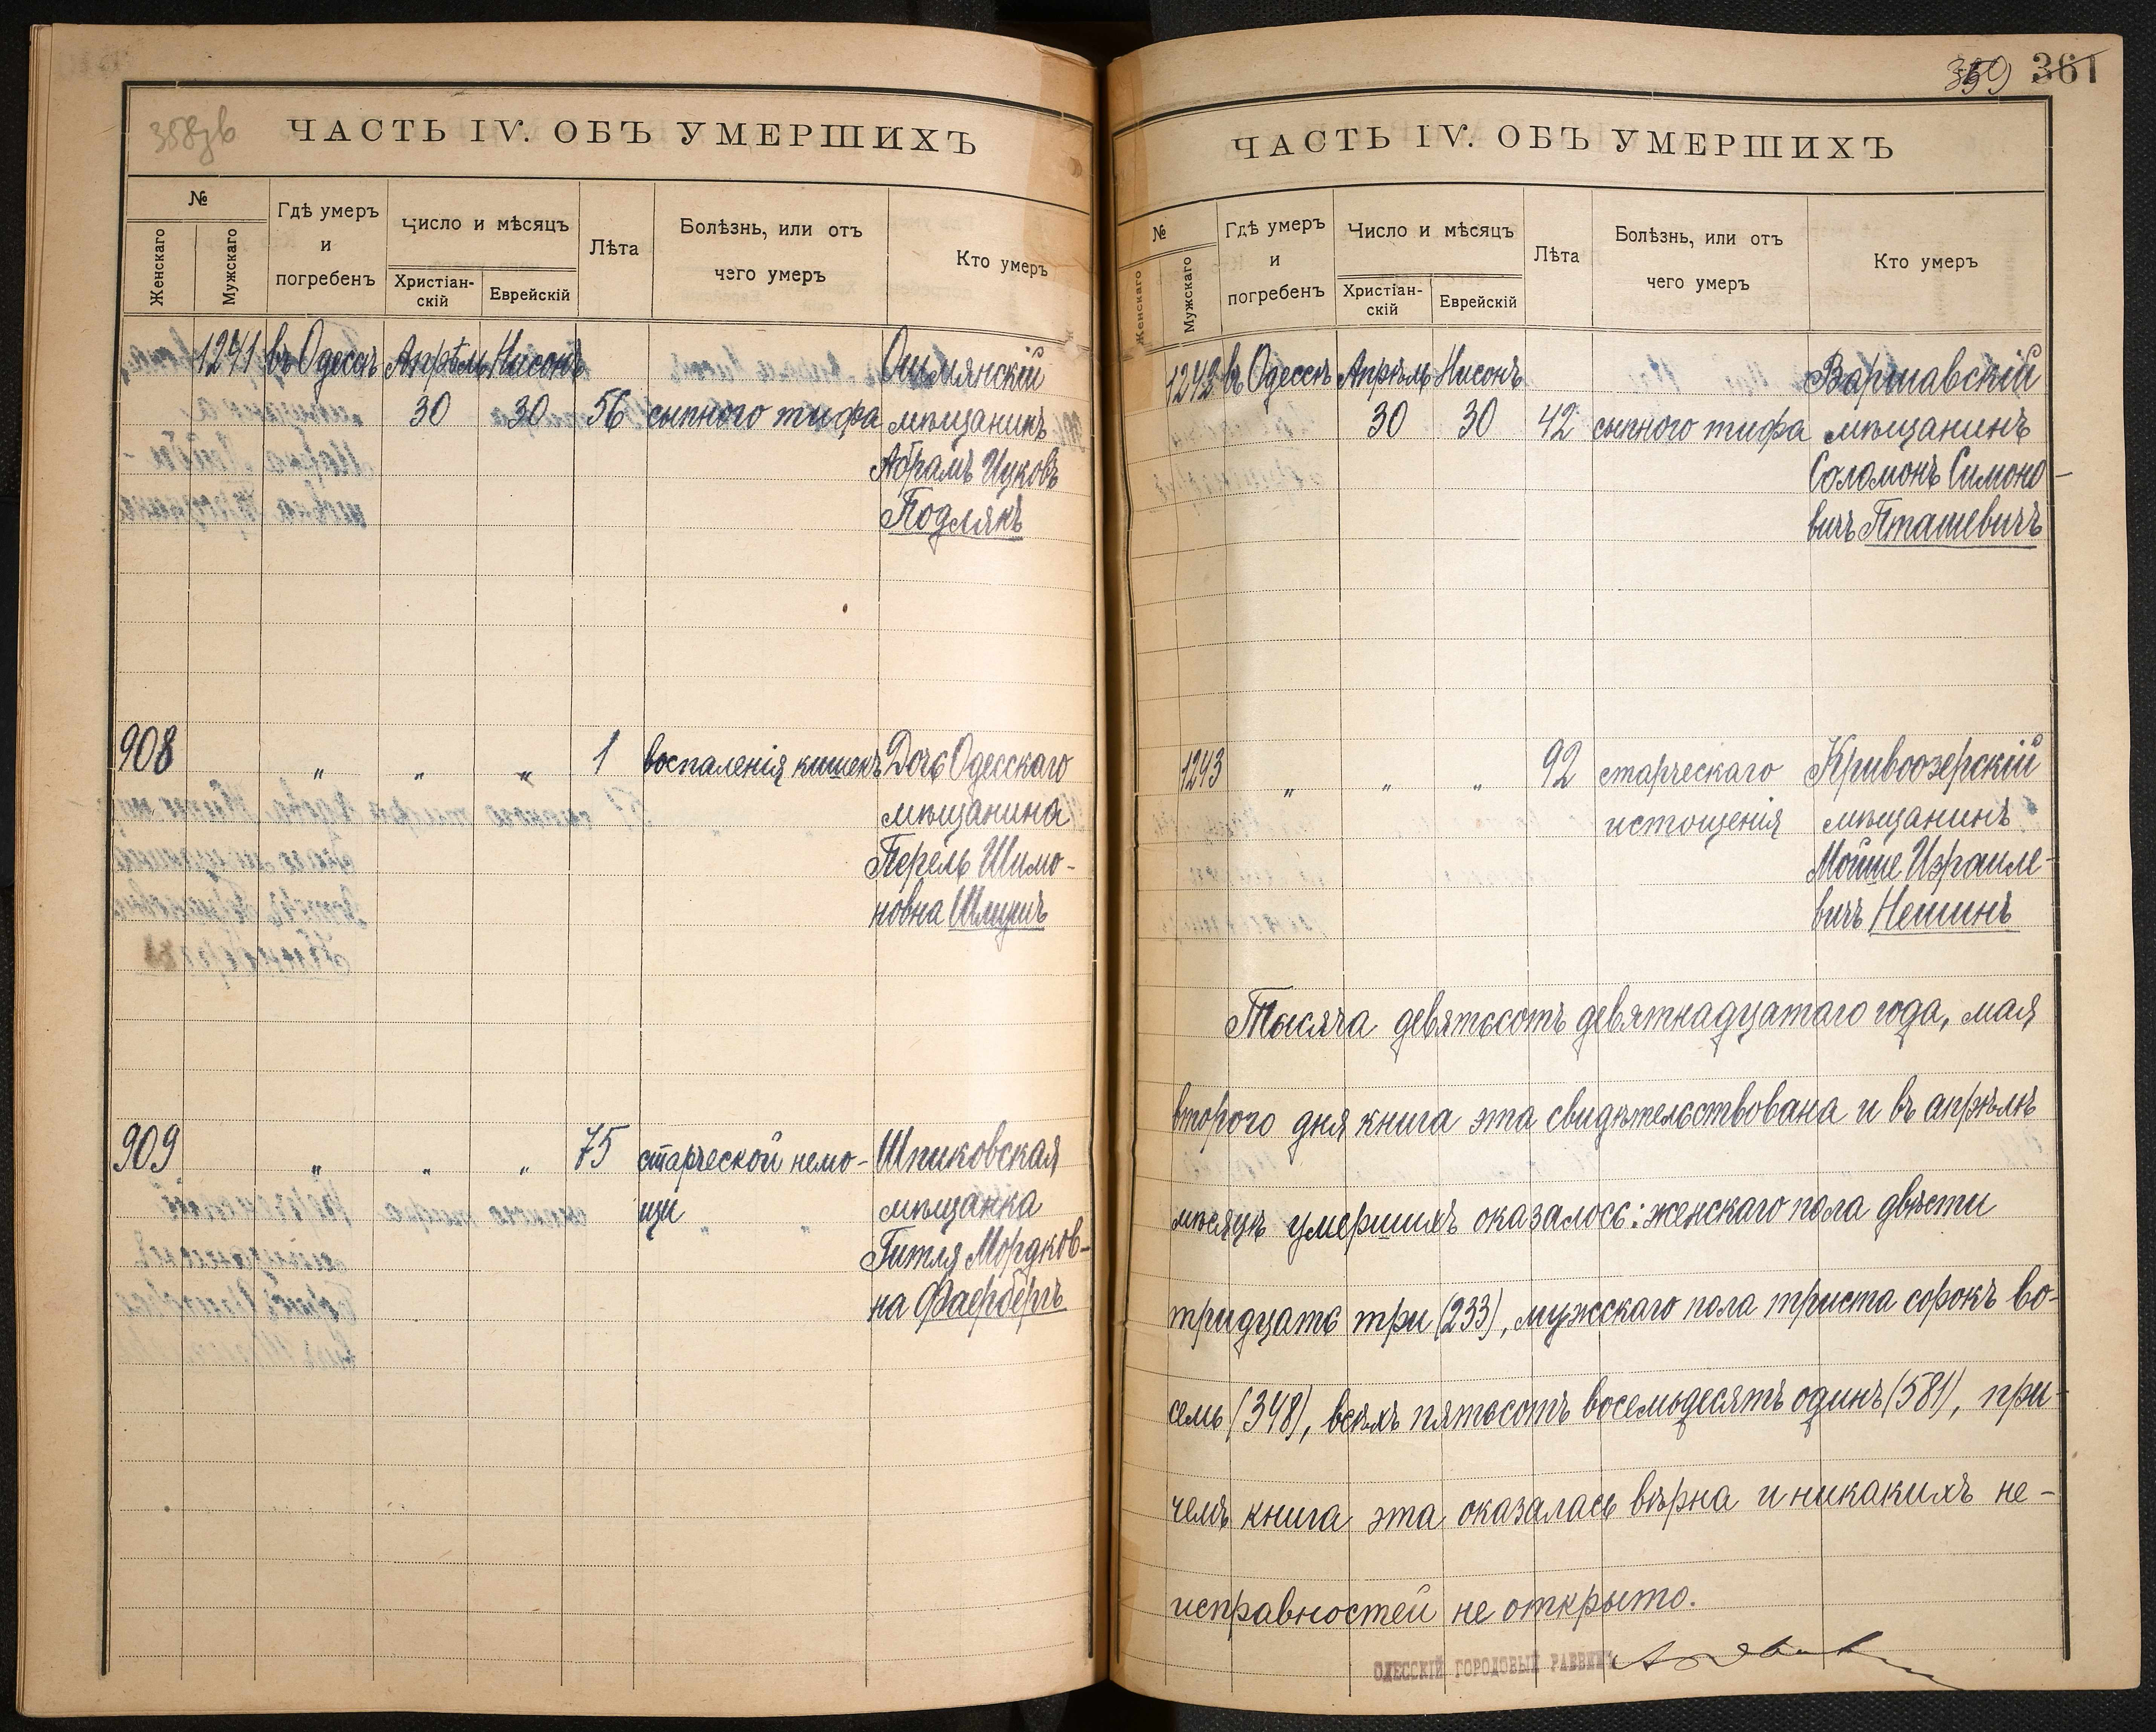 358зв
ЧАСТЬ IV. ОБЪ УМЕРШИХЪ
№
Женскаго
Мужскаго
Гдѣ умеръ
и
погребенъ
Число и мѣсяцъ
Христіан-
скій
Еврейскій
Лѣта
Болѣзнь, или отъ
чего умеръ
Кто умеръ
1241 въ Одессѣ Апрѣль Нисонъ Ошмянскій
30 30 56 сыпного тифа мѣщанинъ
Абрамъ Ицковъ
Подлякъ
908 " " " 1 воспаленія кишекъ Дочь Одесскаго
мѣщанина
Перель Шимо-
новна
909 " " " 75 старческой немо- Шпиковская
щи мѣщанка
Гитля Мордков-
на Фаербергъ
359 361
ЧАСТЬ IV. ОБЪ УМЕРШИХЪ
№
Женскаго
Мужскаго
Гдѣ умеръ
и
погребенъ
Число и мѣсяцъ
Христіан-
скій
Еврейскій
Лѣта
Болѣзнь, или отъ
чего умеръ
Кто умеръ
1242 въ Одессѣ Апрѣль Нисонъ Варшавскій
30 30 42 сыпного тифа мѣщанинъ
Соломонъ Симоно-
вичъ Пташевичъ
1243 " " " 92 старческаго Кривоозерскій
истощенія мѣщанинъ
Мойше Израиле-
вичъ Нешинъ
Тысяча девятьсотъ девятнадцатаго года, мая
второго дня книга эта свидѣтельствована и въ апрѣлѣ
мѣсяцѣ умершихъ оказалось: женскаго пола двѣсти
тридцать три (233), мужскаго пола триста сорокъ во-
семь (348), всѣхъ пятьсотъ восемьдесятъ одинъ (581), при-
чемъ книга эта оказалась вѣрна и никакихъ не-
исправностей не открыто.
ОДЕССКІЙ ГОРОДОВЫЙ РАВВИНЪ